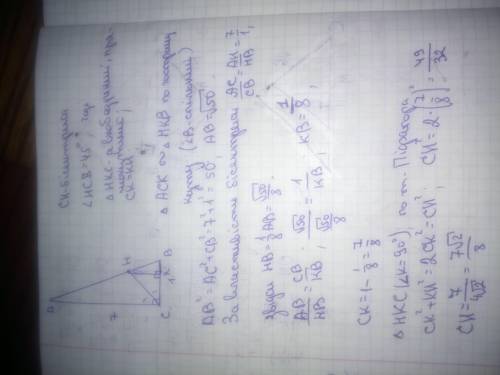 CH-бісектриса
∠HCB=45°, тоді
△HKC-рівнобедрений, пря-
мокутний,
CK=KH
△ACK ∾ △HKB по гострому
куту (∠B-спільний)
AB²=AC²+CB²=7²+1²=50; AB=√50.
За властивістю бісектриси AC/CB=AH/HB=7/1,
звідси HB=1/8 AB=√50/8.
AB/HB=CB/KB; √50/(√50/8)=1/KB; KB=1/8;
CK=1-1/8=7/8
△HKC (∠K=90°) по т. Піфагора
CK²+KH²=2CK²=CH²; CH²=2·(7/8)²=49/32
CH=7/4√2=7√2/8
A
7
H
C
1
K
B